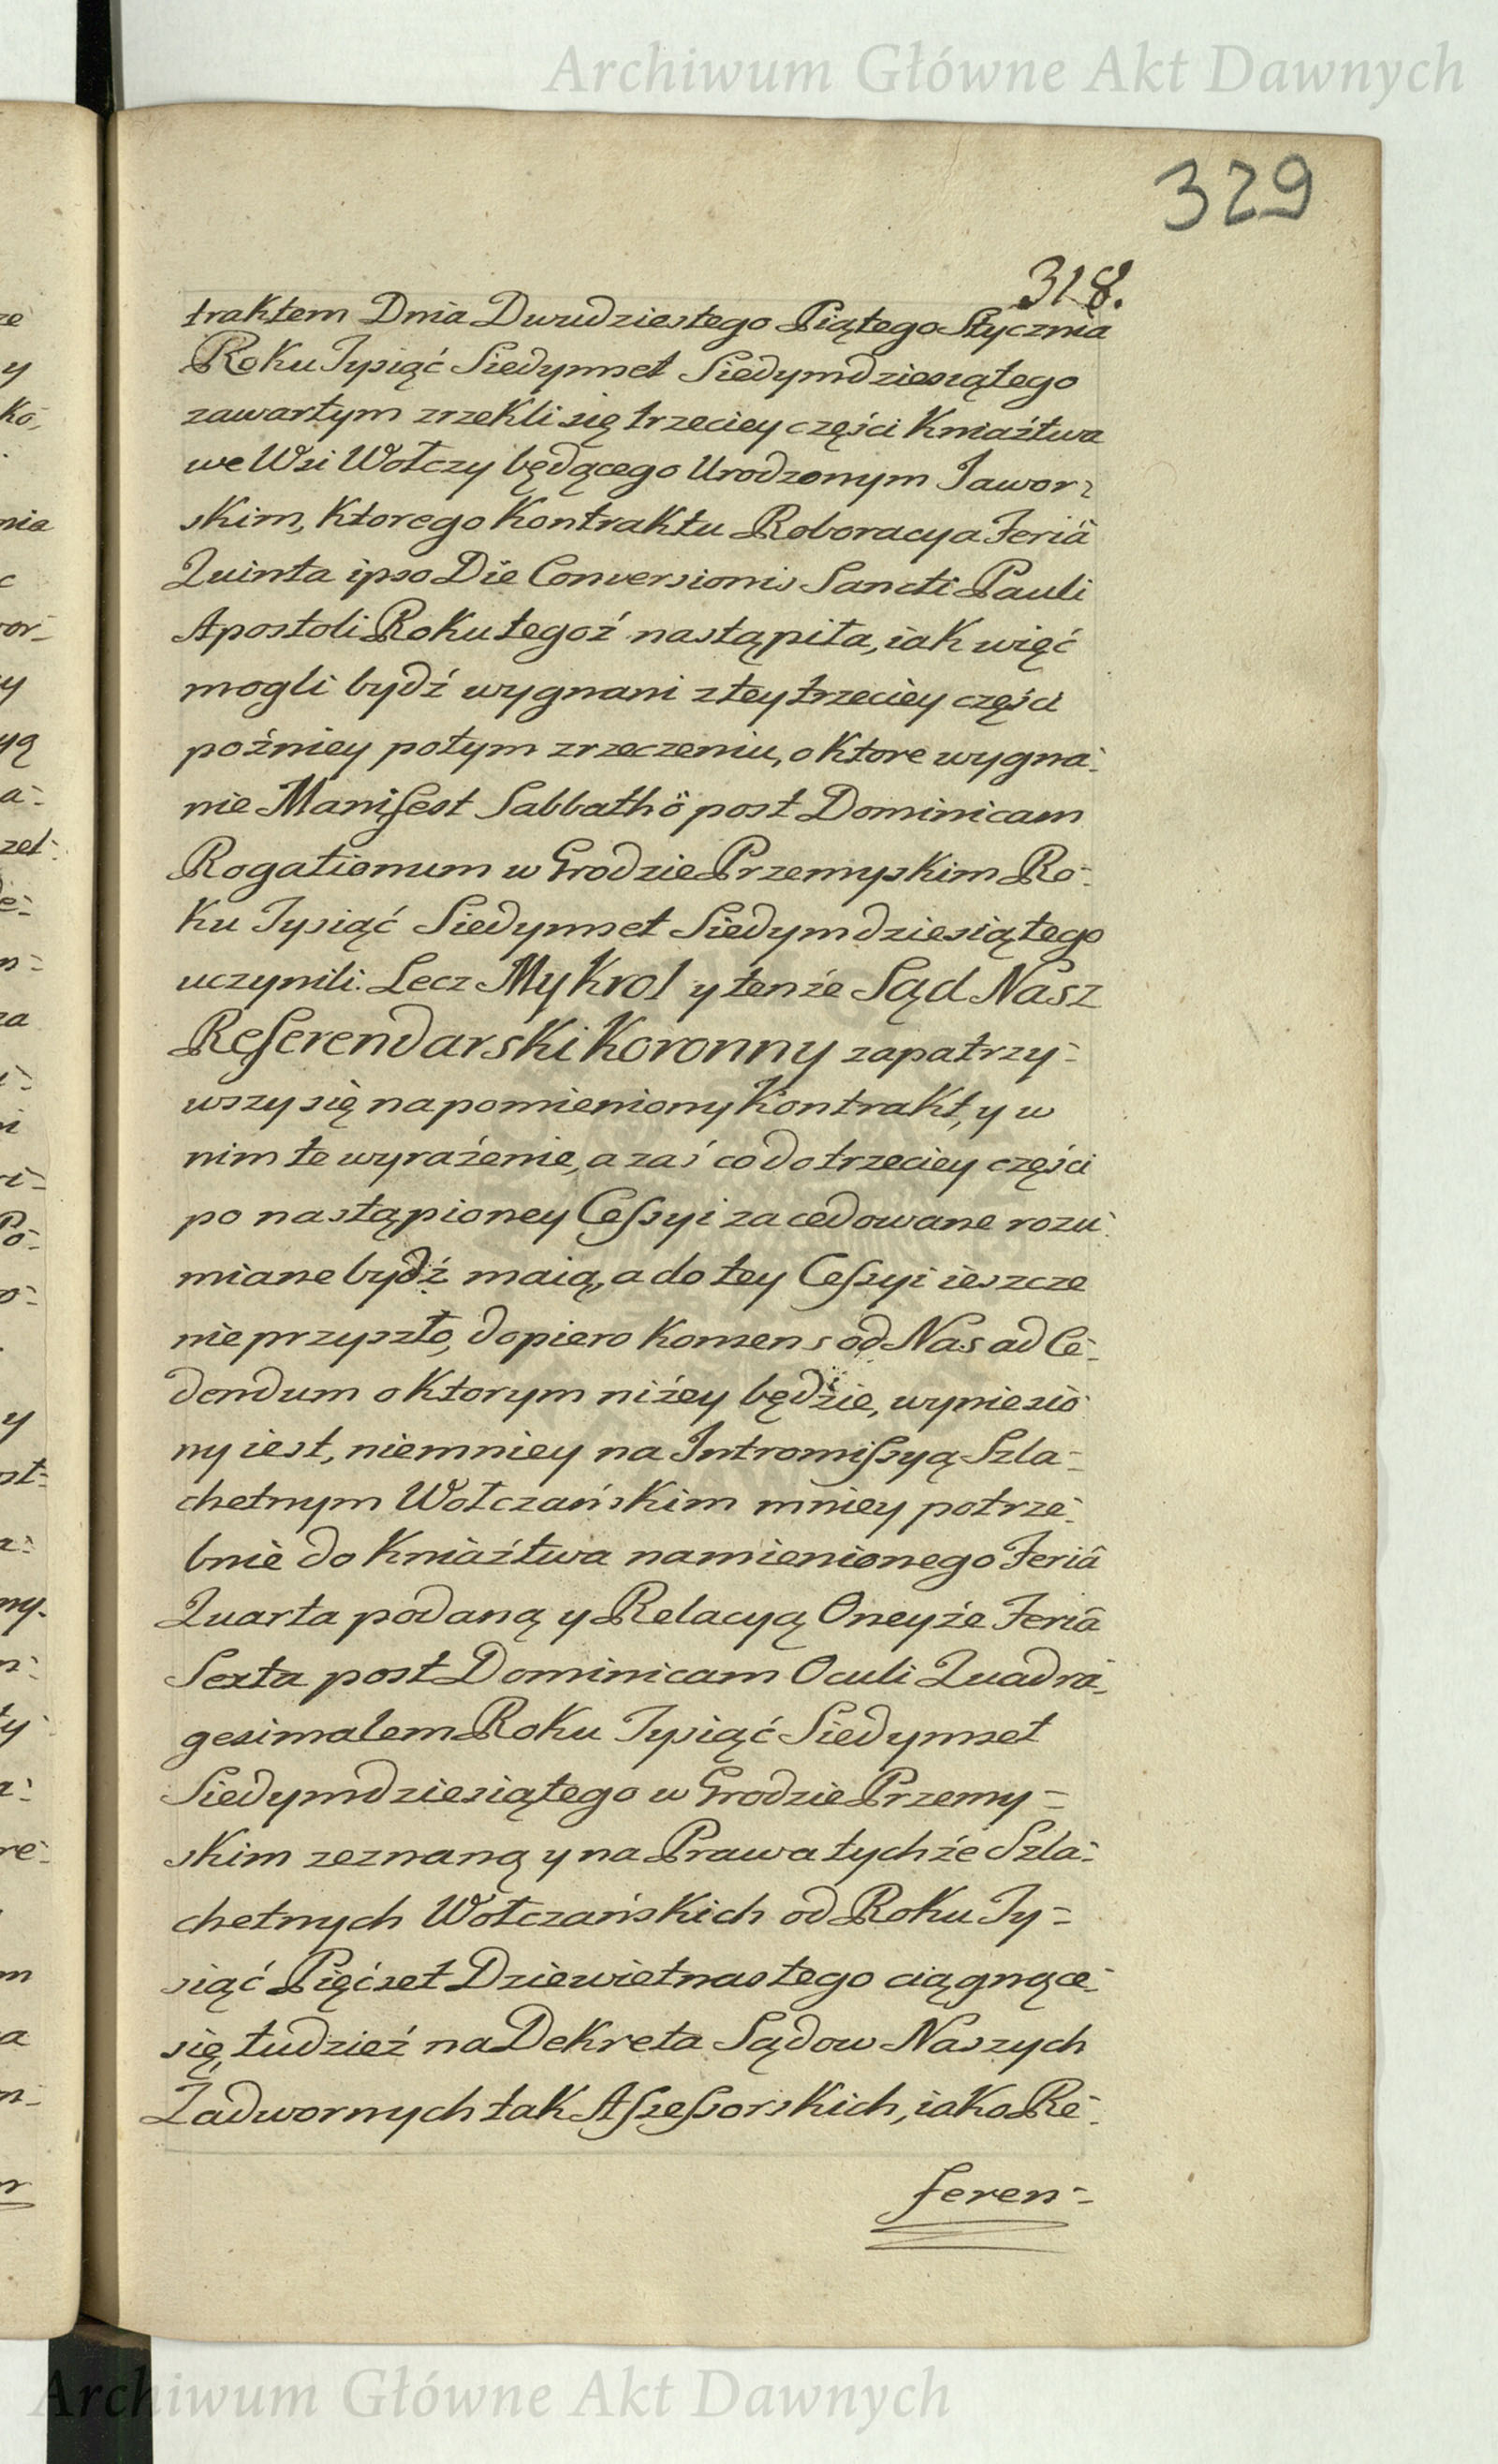 Archiwum Główne Akt Dawnych
329
318.
traktem Dnia Dwudziestego Piątego Stycznia
Roku Tysiąć Siedymset Siedymdziesiątego
zawartym zrzekli się trzeciey części Kniaźtwa
we Wsi Wołczy będącego Urodzonym Jawor-
skim, Ktorego Kontraktu Roboracya Feriâ
Quinta ipso Die Conversionis Sancti Pauli
Apostoli Roku tegoż nastąpiła, iak więć
mogli bydź wygnani z tey trzeciey części
poźniey potym zrzeczeniu, o Ktore wygna-
nie Manifest Sabbathô post Dominicam
Rogationum w Grodzie Przemyskim Ro-
ku Tysiąć Siedymset Siedymdziesiątego
uczynili. Lecz My Krol y tenże Sąd Nasz
Referendarski Koronny zapatrzy-
wszy się na pomieniony Kontrakt, y w
nim te wyrażenie, a zaś co do trzeciey części
po nastąpioney Cessyi za cedowane rozu-
miane bydź maią, a do tey Cessyi ieszcze
nie przyszło, dopiero Konsens od Nas ad Ce-
dendum o Ktorym niżey będzie, wyniesio-
ny iest, niemniey na Intromissyą Szla-
chetnym Wołczańskim mniey potrze-
bnie do Kniaźtwa namienionego Feriâ
Quarta podaną y Relacyą Oneyże Feriâ
Sexta post Dominicam Oculi Quadra-
gesimalem Roku Tysiąć Siedymset
Siedymdziesiątego w Grodzie Przemy-
skim zeznaną y na Prawa tychże Szla-
chetnych Wołczańskich od Roku Ty-
siąć Pięćset Dziewietnastego ciągnące
się, tudzież na Dekreta Sądow Naszych
Zadwornych tak Assessorskich, iako Re-
feren-
Archiwum Główne Akt Dawnych